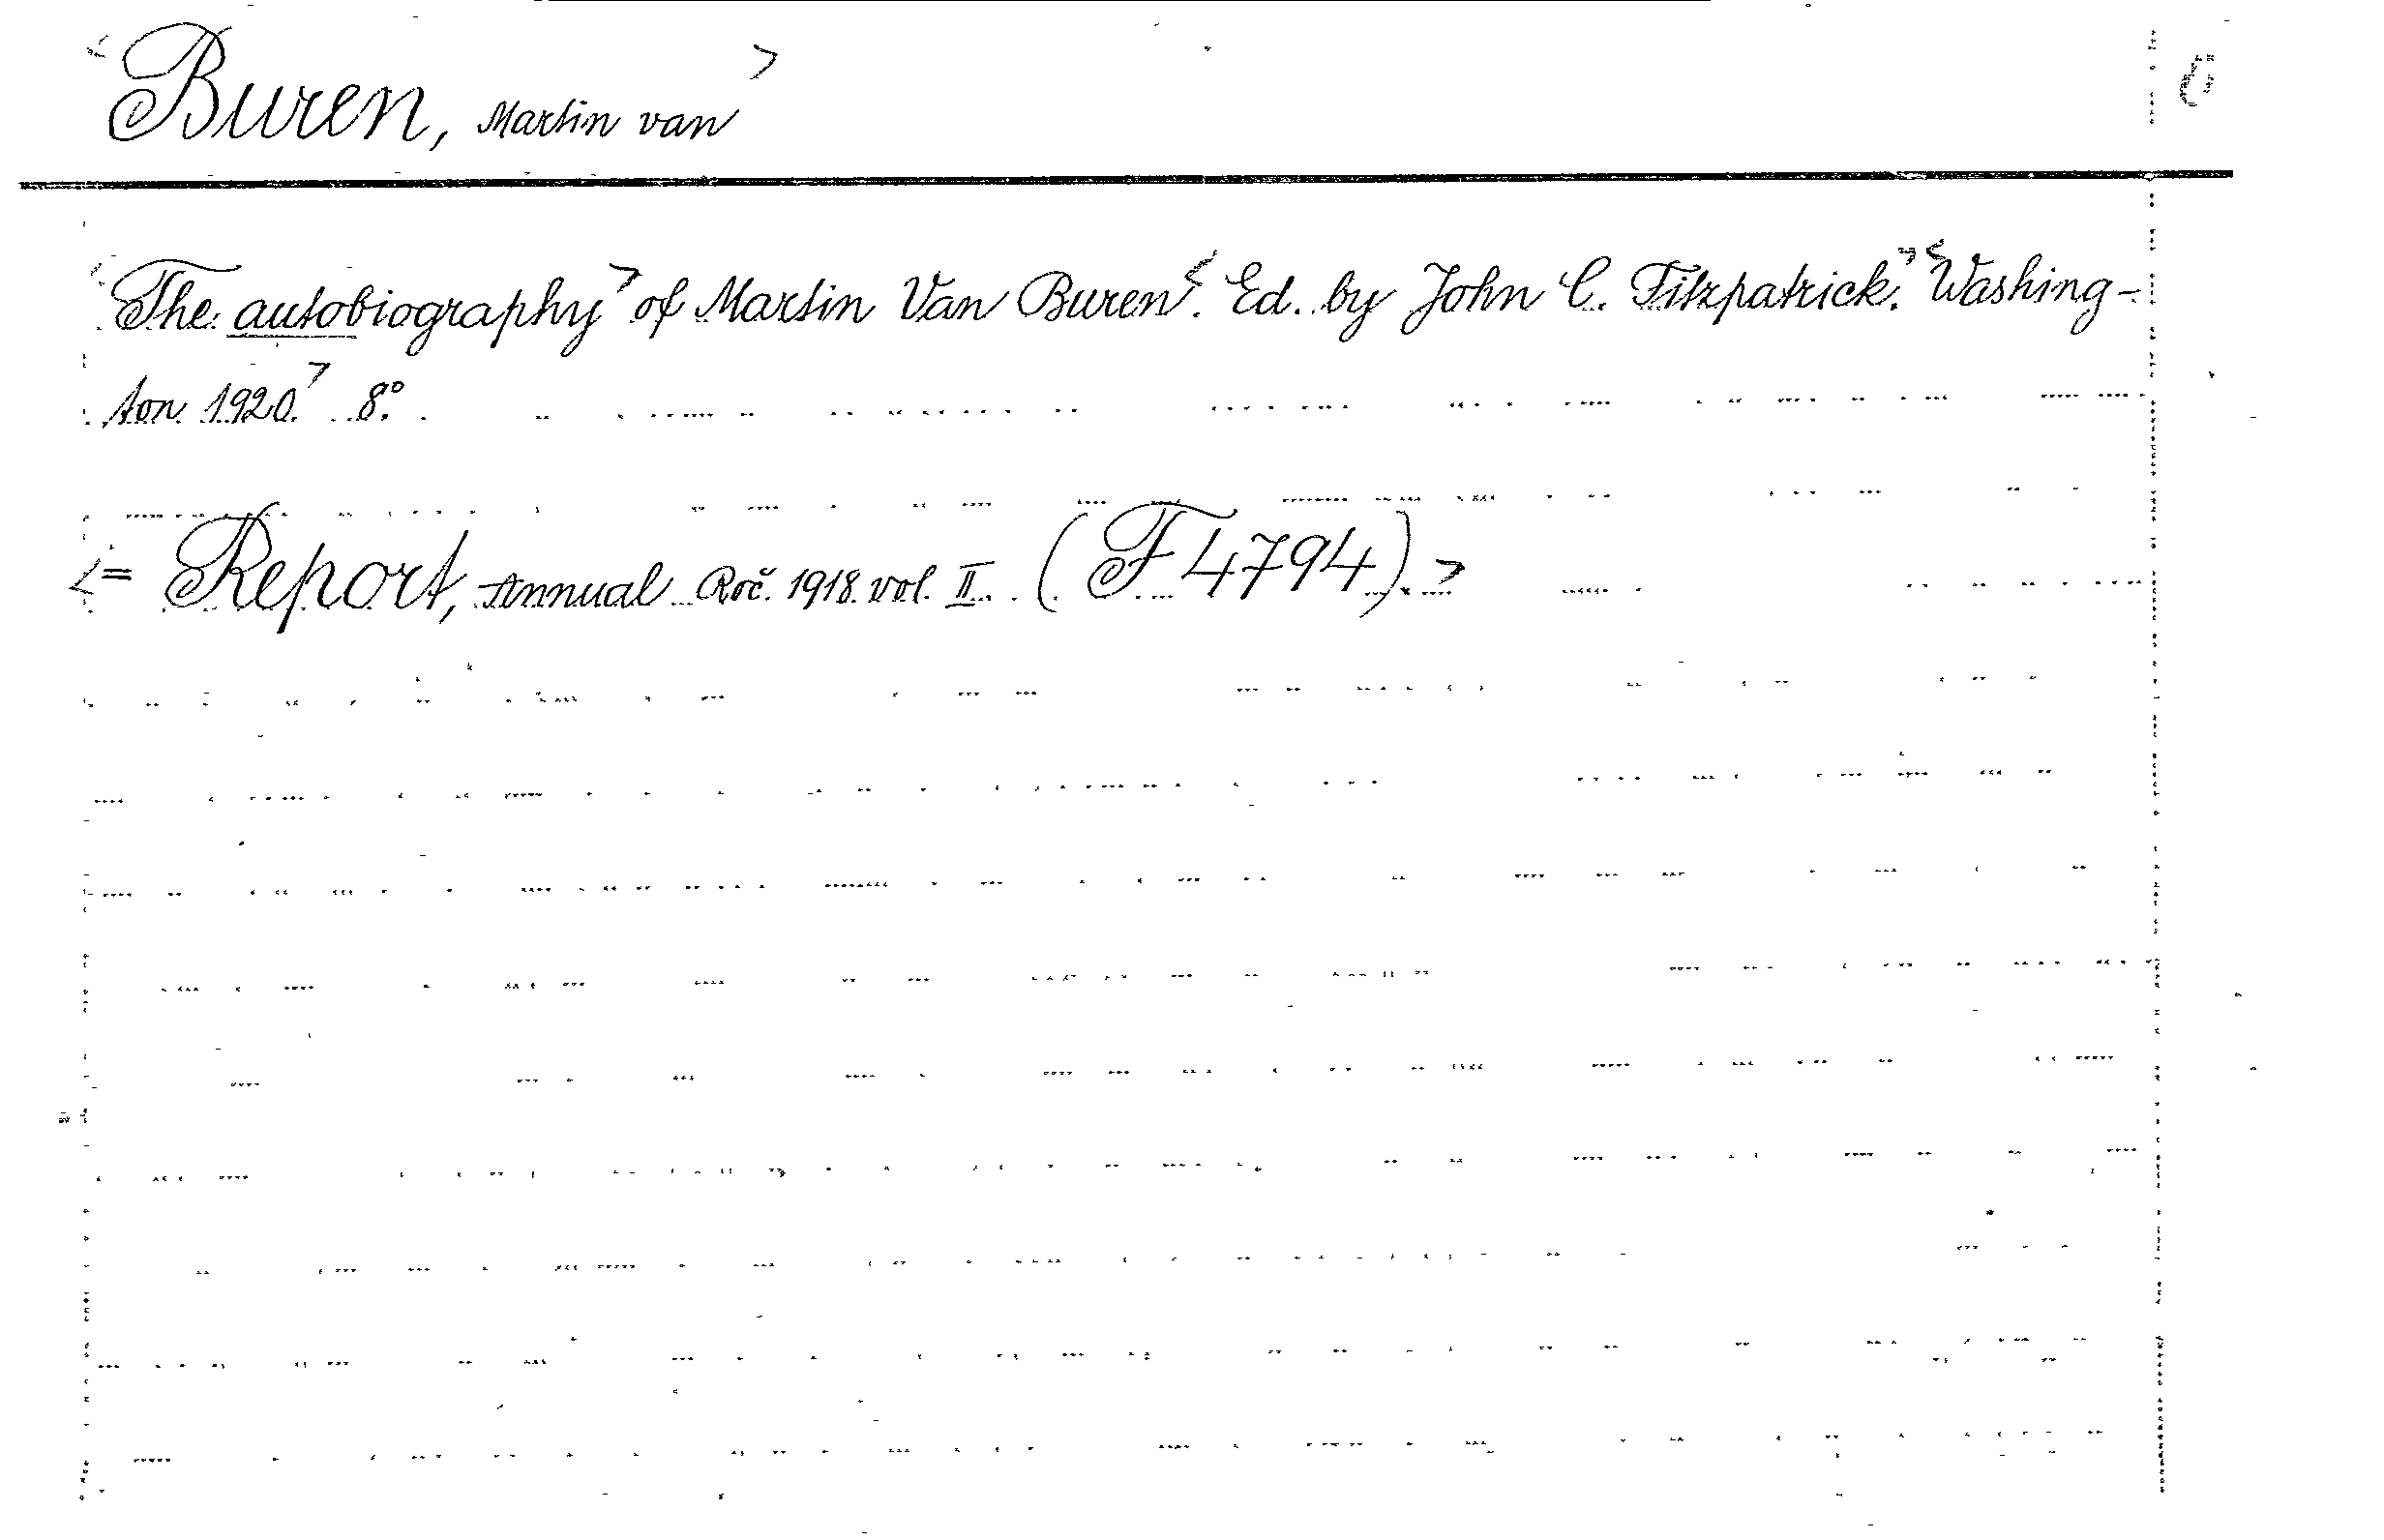 Buren, Martin van
The autobiography of Martin Van Buren. Ed. by John C. Fitzpatrick. Washing-
ton 1920. 8°.
= Report, Annual Roč. 1918. vol. II. (F 4794).